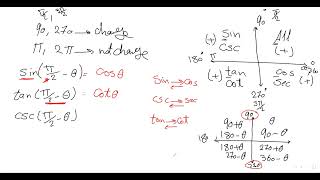 π/2, 3π/2
90, 270 → change
π, 2π → not change
sin(π/2 - θ) = cosθ
tan(π/2 - θ) = cotθ
csc(π/2 - θ)
sin ↔ cos
csc ↔ sec
tan ↔ cot
90° π/2
(+) sin csc
All (+)
180° π
(+) tan cot
cos sec (+)
270° 3π/2
90
90+θ
180-θ
θ
90-θ
180
180+θ
270-θ
270+θ
360-θ